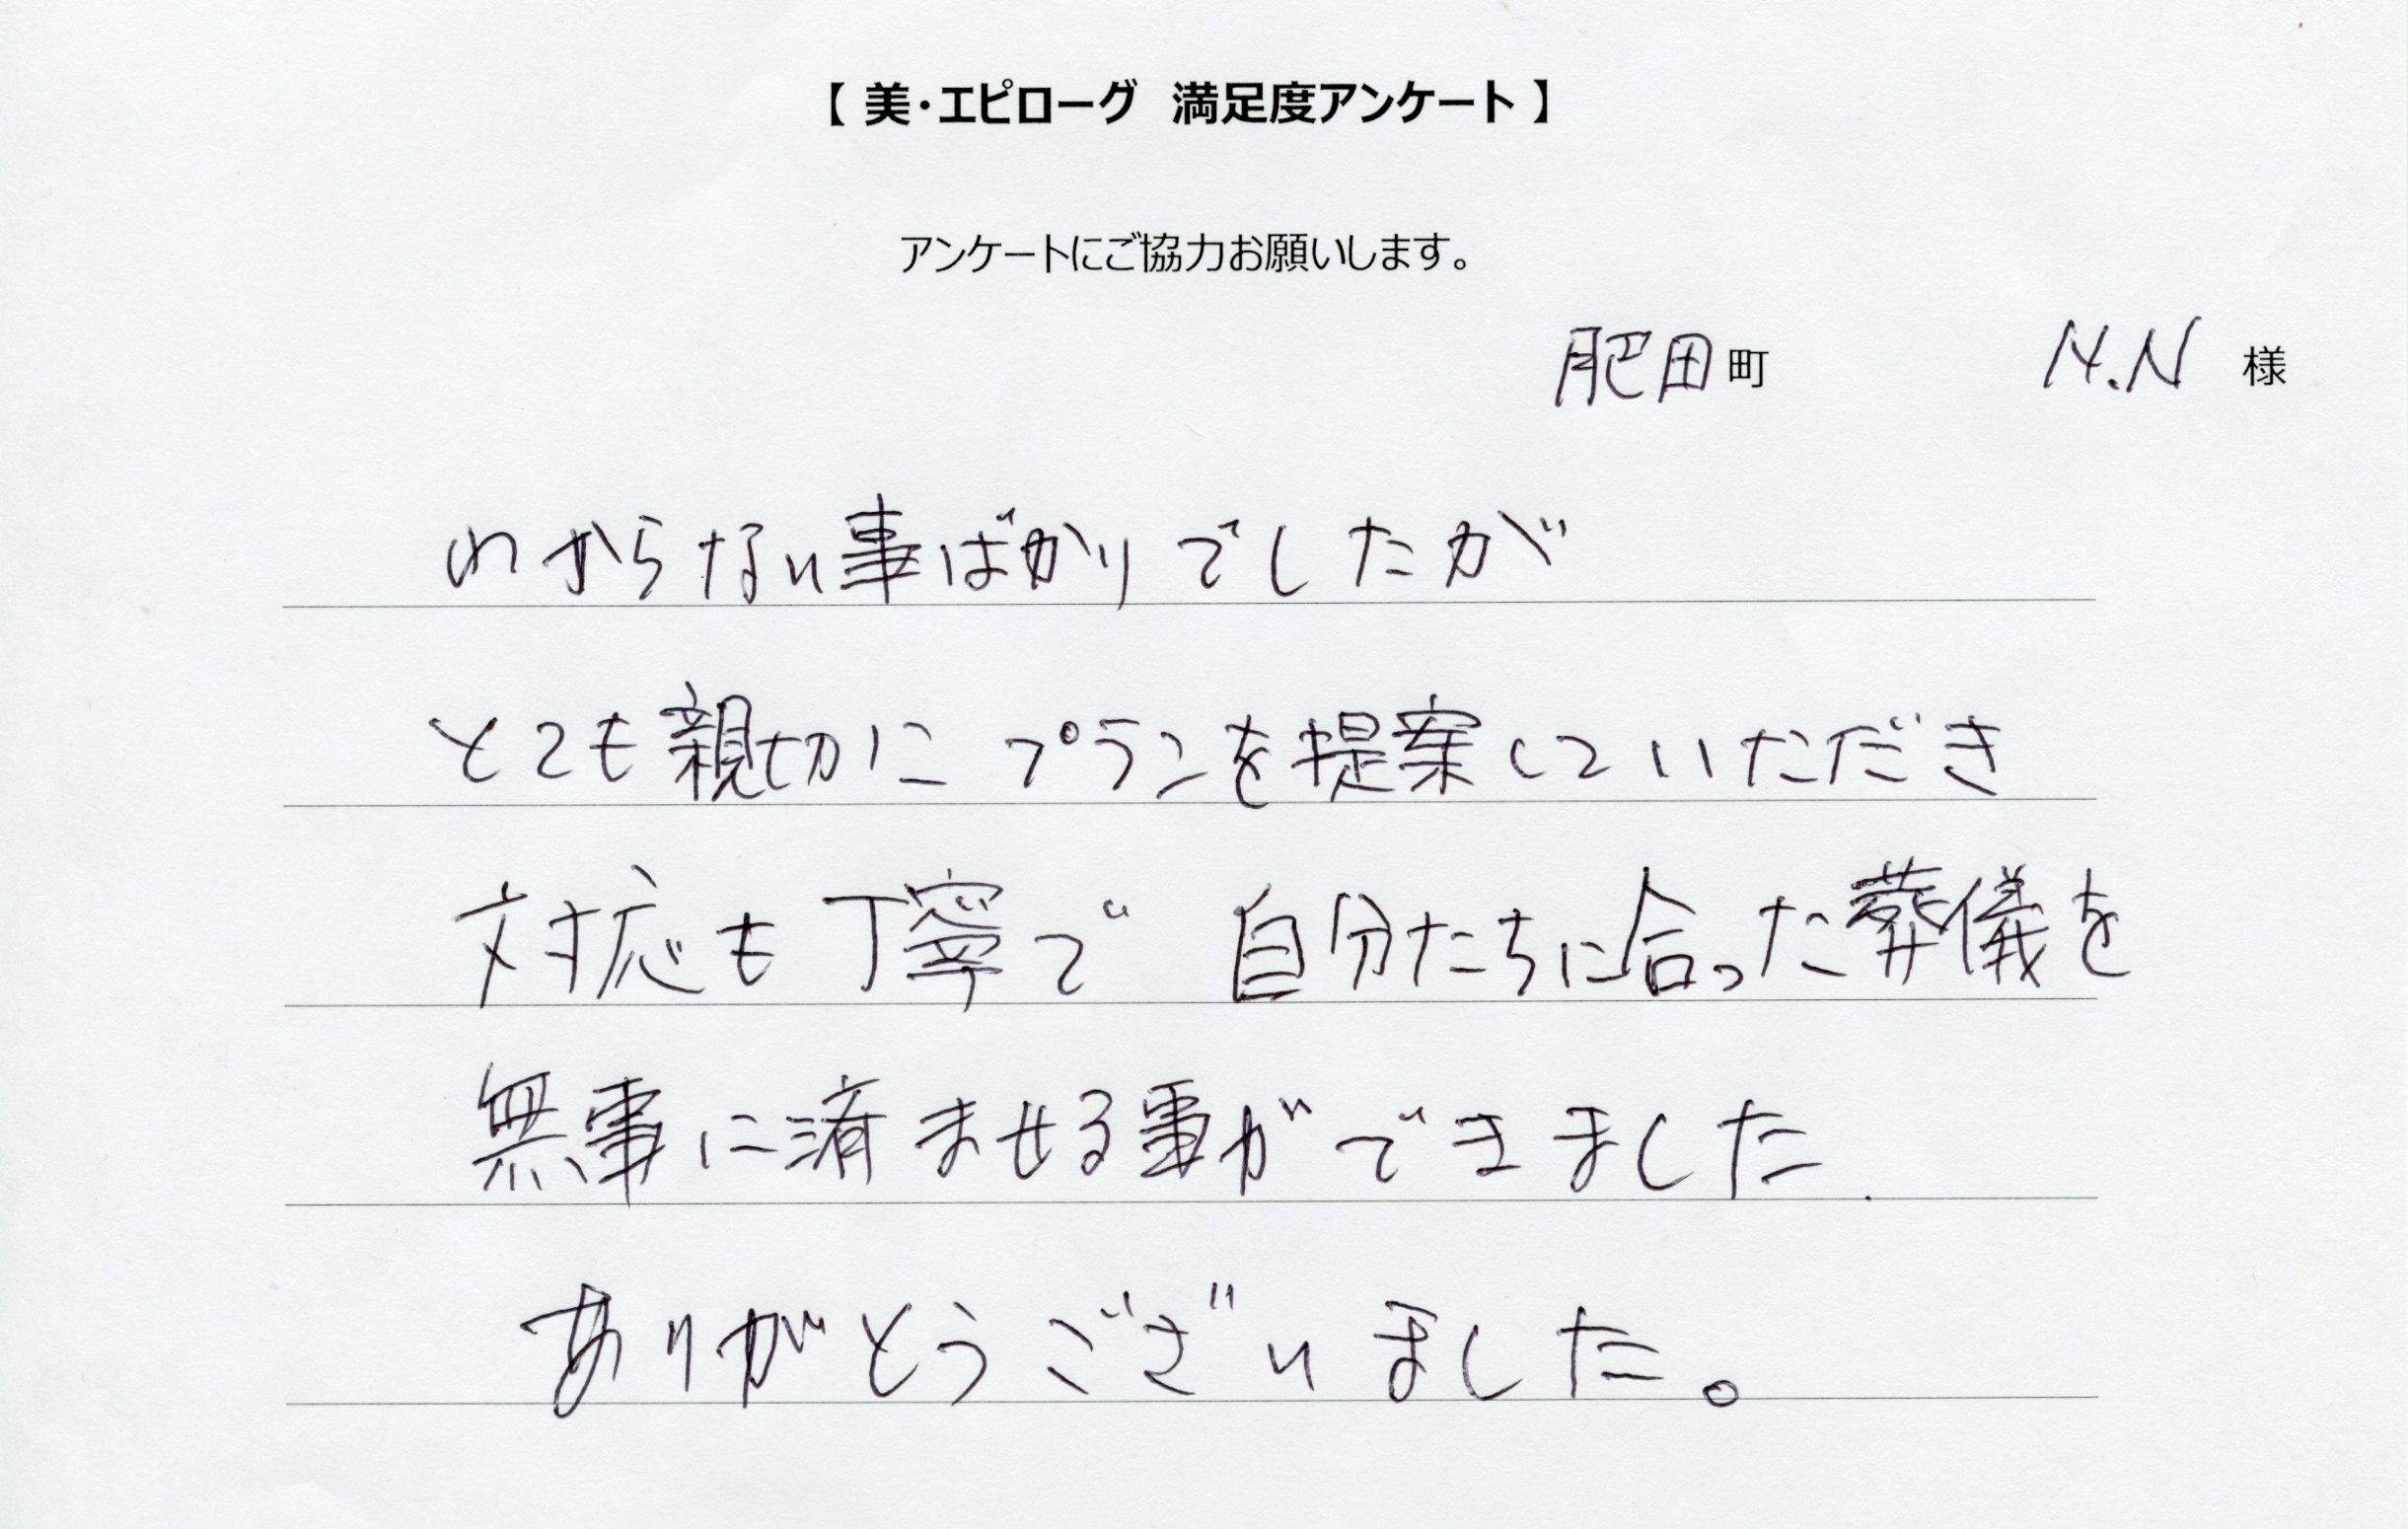 【 美・エピローグ　満足度アンケート 】
アンケートにご協力お願いします。
肥田町　N.N 様
わからない事ばかりでしたが
とても親切に プランを提案していただき
対応も丁寧で 自分たちに合った葬儀を
無事に済ませる事ができました.
ありがとうございました。